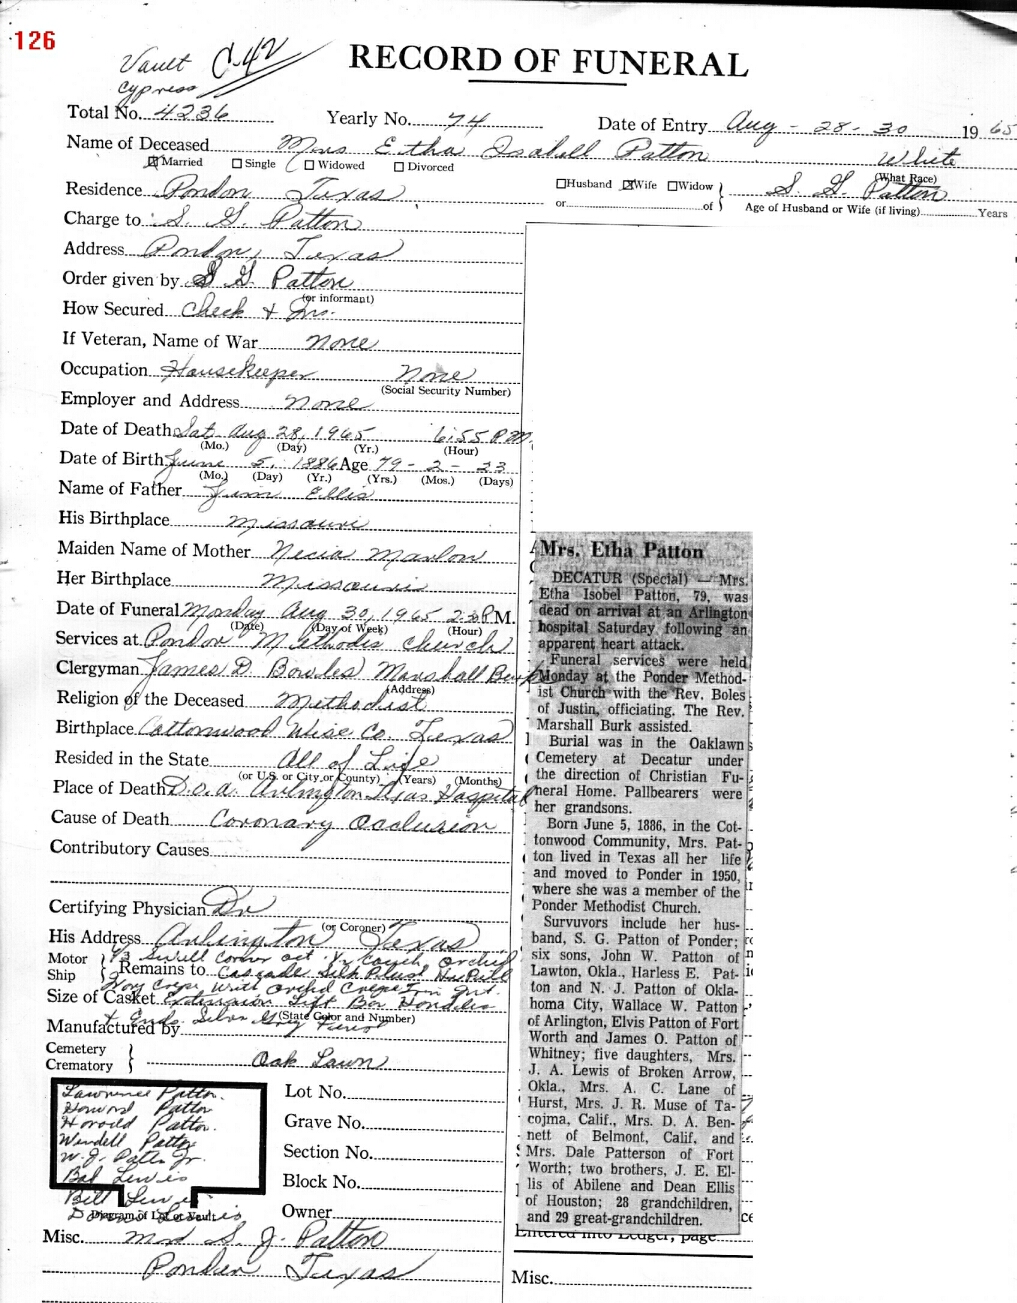 126
Vault C-42
Cypress
RECORD OF FUNERAL
Total No. 4236 Yearly No. 74 Date of Entry Aug - 28-30 1965
Name of Deceased Mrs Etha Isabell Patton White
Married Single Widowed Divorced (What Race)
Residence Pondon Texas Husband Wife Widow S. G. Patton
or of Age of Husband or Wife (if living) Years
Charge to S. G. Patton
Address Pondon, Texas
Order given by S G. Patton
(or informant)
How Secured Check + Ins.
If Veteran, Name of War none
Occupation Housekeeper None
(Social Security Number)
Employer and Address none
Date of Death Sat Aug 28, 1965 6:55 P.M.
(Mo.) (Day) (Yr.) (Hour)
Date of Birth June 5, 1886 Age 79 - 2 - 23
(Mo.) (Day) (Yr.) (Yrs.) (Mos.) (Days)
Name of Father Jim Ellis
His Birthplace Missouri
Maiden Name of Mother Necia Marlow
Her Birthplace Missouri
Date of Funeral Monday Aug 30, 1965 2:30 P M.
(Date) (Day of Week) (Hour)
Services at Pondor Methodis church
Clergyman James D. Bowles Marshall Burk
(Address)
Religion of the Deceased Methodist
Birthplace Cottonwood Wise Co. Texas
Resided in the State All of Life
(or U.S. or City or County) (Years) (Months)
Place of Death D.o.a. Arlington Texas Hospital
Cause of Death Coronary Occlusion
Contributory Causes
Certifying Physician Dr
(or Coroner)
His Address Arlington Texas
Motor
Ship
Remains to Cascade Silk Plush
Size of Casket
(State Color and Number)
Manufactured by
Cemetery
Crematory Oak Lawn
Lawrence Patton
Howard Patton
Harold Patton
Wendell Patton
W. J. Patton Jr.
Bob Lewis
Bill Lewis
Diagram of Lot or Vault
Lot No.
Grave No.
Section No.
Block No.
Owner
Misc. Mrs S. J. Patton
Ponder Texas
Mrs. Etha Patton
DECATUR (Special) — Mrs.
Etha Isobel Patton, 79, was
dead on arrival at an Arlington
hospital Saturday following an
apparent heart attack.
Funeral services were held
Monday at the Ponder Method-
ist Church with the Rev. Boles
of Justin, officiating. The Rev.
Marshall Burk assisted.
Burial was in the Oaklawn
Cemetery at Decatur under
the direction of Christian Fu-
neral Home. Pallbearers were
her grandsons.
Born June 5, 1886, in the Cot-
tonwood Community, Mrs. Pat-
ton lived in Texas all her life
and moved to Ponder in 1950,
where she was a member of the
Ponder Methodist Church.
Survuvors include her hus-
band, S. G. Patton of Ponder;
six sons, John W. Patton of
Lawton, Okla., Harless E. Pat-
ton and N. J. Patton of Okla-
homa City, Wallace W. Patton
of Arlington, Elvis Patton of Fort
Worth and James O. Patton of
Whitney; five daughters, Mrs.
J. A. Lewis of Broken Arrow,
Okla., Mrs. A. C. Lane of
Hurst, Mrs. J. R. Muse of Ta-
cojma, Calif., Mrs. D. A. Ben-
nett of Belmont, Calif, and
Mrs. Dale Patterson of Fort
Worth; two brothers, J. E. El-
lis of Abilene and Dean Ellis
of Houston; 28 grandchildren,
and 29 great-grandchildren.
Entered into Ledger, page
Misc.